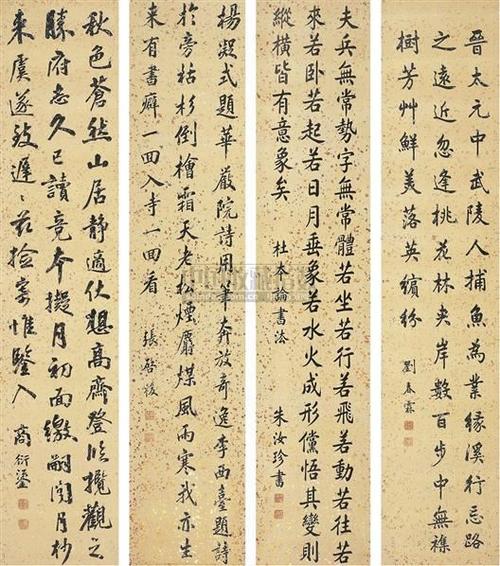 晉太元中武陵人捕魚為業緣溪行忘路
之遠近忽逢桃花林夾岸數百步中無襍
樹芳艸鮮美落英繽紛
劉春霖
夫兵無常勢字無常體若坐若行若飛若動若往若
來若臥若起若日月垂象若水火成形儻悟其變則
縱橫皆有意象矣
杜本論書法
朱汝珍書
楊凝式題華嚴院詩用筆奔放奇逸李西臺題詩
於旁枯杉倒檜霜天老松煙麝煤風雨寒我亦生
來有書癖一回入寺一回看
張啓後
秋色蒼然山居靜適伏想高齋登臨攬觀之
勝府志久已讀竟本擬月初面繳嗣聞月杪
來虞遂致遲遲茲撿寄惟鑒入
商衍鎏